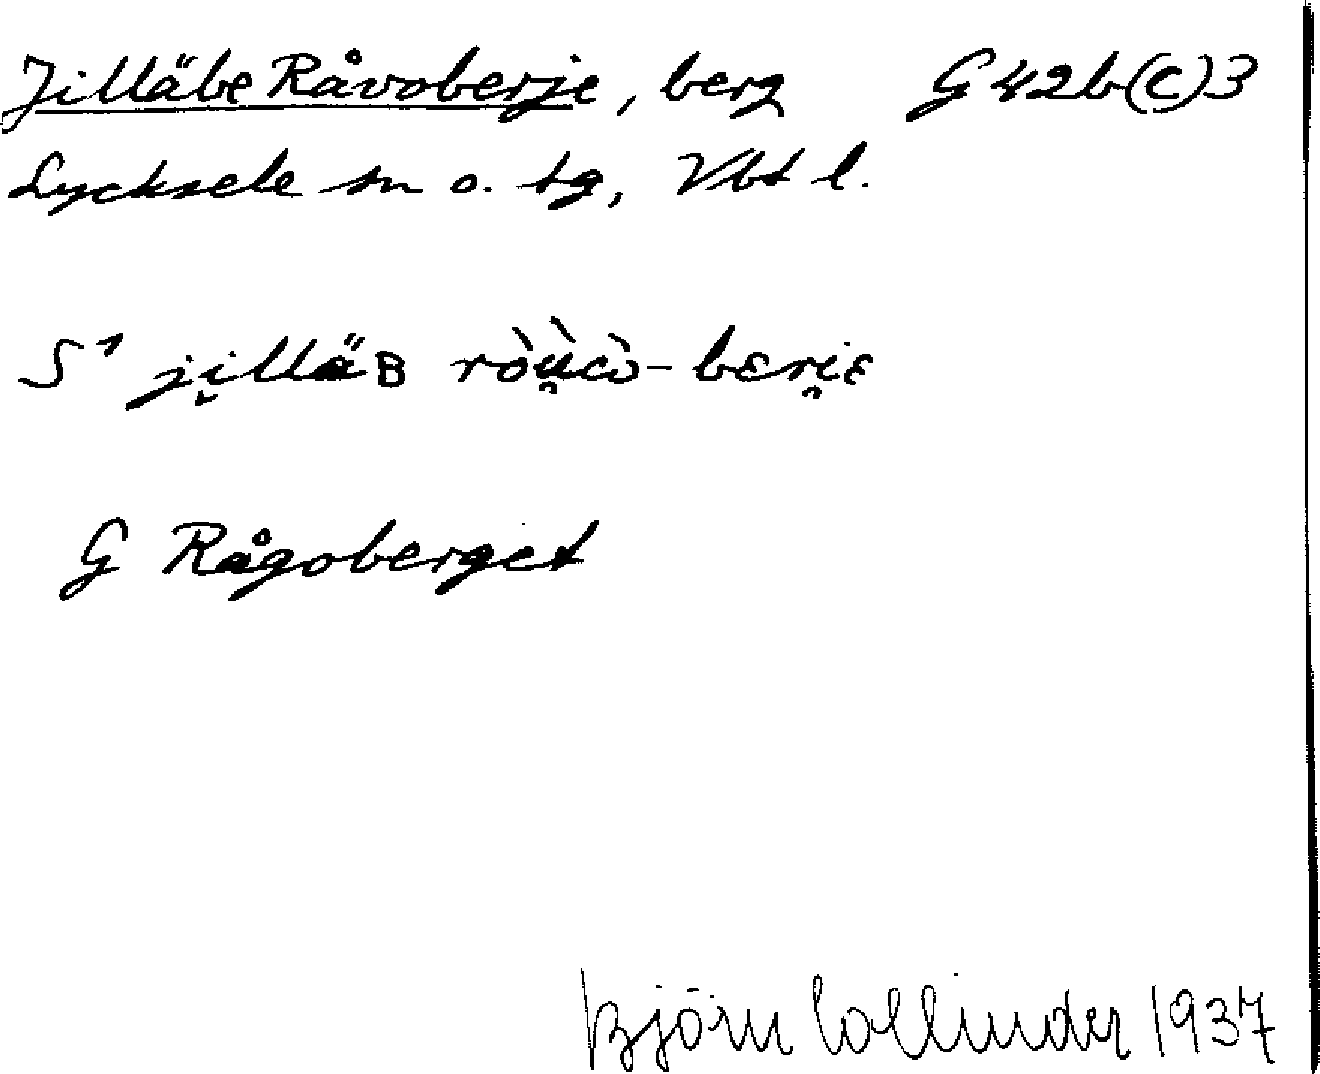 Jilläbe Råvoberje, berg G 42b(c)3
Lycksele sn o. tg, Vbt l.
S¹ ji̯lläʙ ròù̯ɷ̀-bɛri̯ɛ
G Rågoberget
Björn Collinder 1937